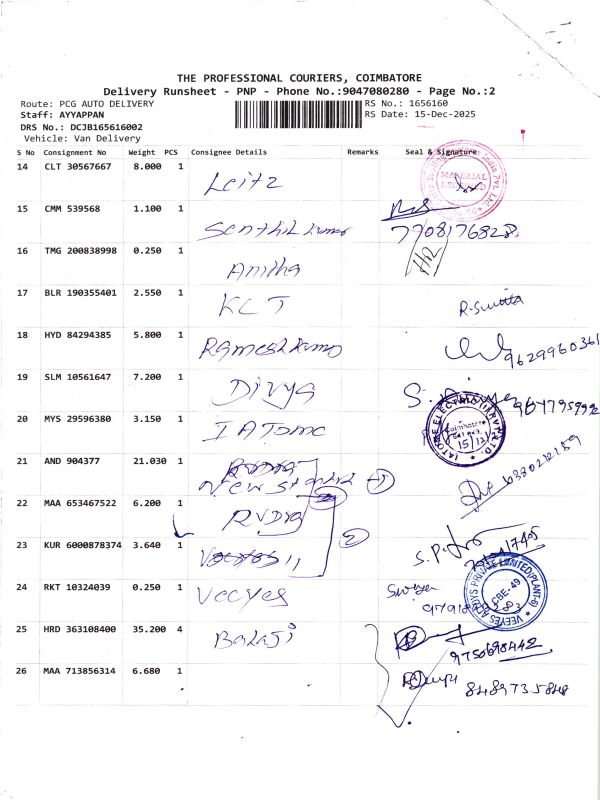 THE PROFESSIONAL COURIERS, COIMBATORE
Delivery Runsheet - PNP - Phone No.:9047080280 - Page No.:2
Route: PCG AUTO DELIVERY RS No.: 1656160
Staff: AYYAPPAN RS Date: 15-Dec-2025
DRS No.: DCJB165616002
Vehicle: Van Delivery
S No Consignment No Weight PCS Consignee Details Remarks Seal & Signature
14 CLT 30567667 8.000 1 Leitz MATERIAL
15 CMM 539568 1.100 1 Senthil kumar 7708176828
16 TMG 200838998 0.250 1 Anitha HR
17 BLR 190355401 2.550 1 KCT
18 HYD 84294385 5.800 1 Rameshkumar 9629960361
19 SLM 10561647 7.200 1 Divya
20 MYS 29596380 3.150 1 IATOME
21 AND 904377 21.030 1
22 MAA 653467522 6.200 1
23 KUR 6000878374 3.640 1 2
24 RKT 10324039 0.250 1 Veeyes
25 HRD 363108400 35.200 4 Balaji 9750690442
26 MAA 713856314 6.680 1 8489735848